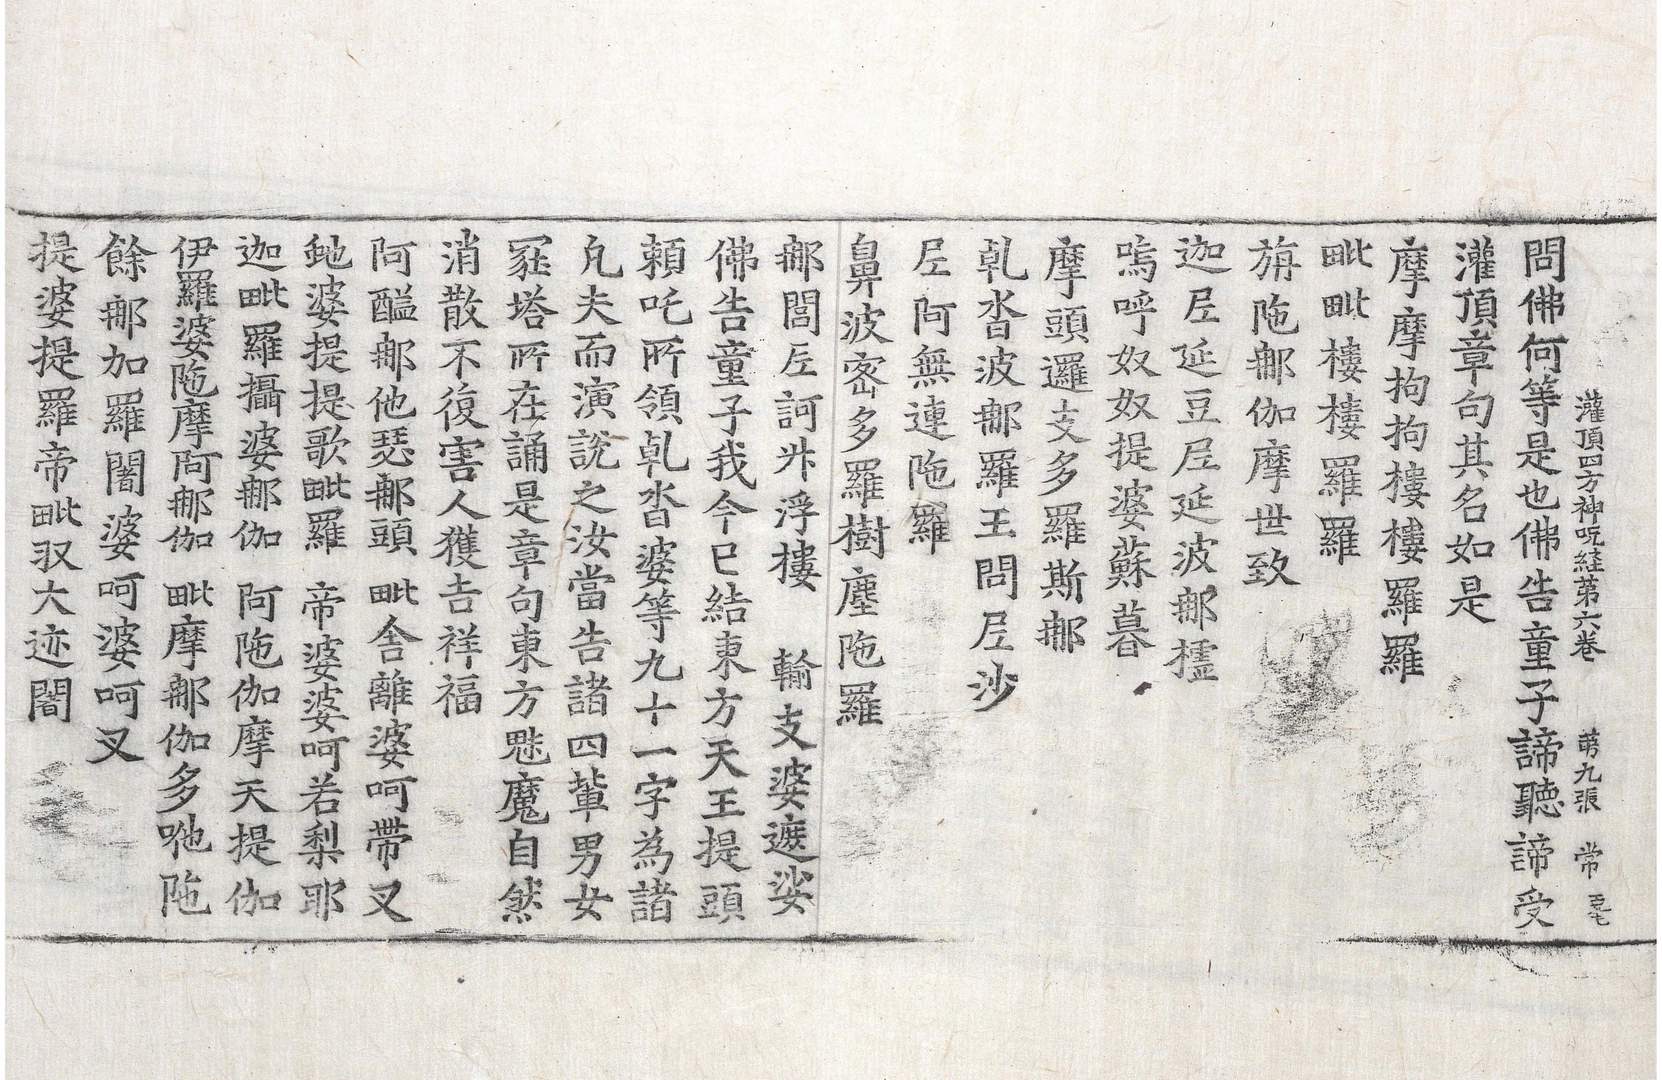 灌頂四方神呪経第六巻 第九張 常
問佛何等是也佛告童子諦聽諦受
灌頂章句其名如是
摩摩拘拘樓樓羅羅
毗毗樓樓羅羅
旃陁𨚗伽摩世致
迦𡰱延豆𡰱延波𨚗櫺
嗚呼奴奴提婆蘇暮
摩頭邏支多羅斯𨚗
乹沓波𨚗羅王問𡰱沙
𡰱阿無連陁羅
鼻波宻多羅樹塵陁羅
𨚗閭𡰱訶㳯浮樓 輸支婆遮娑
佛告童子我今已結東方天王提頭
頼吒所領乹沓婆等九十一字為諸
凡夫而演說之汝當告諸四輩男女
冢塔所在誦是章句東方魅魔自然
消散不復害人獲吉祥福
阿醯𨚗他瑟𨚗頭 毗舍離婆呵帶叉
虵婆提提歌毗羅 帝婆婆呵若梨耶
迦毗羅攝婆𨚗伽 阿陁伽摩天提伽
伊羅婆陁摩阿𨚗伽 毗摩𨚗伽多吔陁
餘𨚗加羅闍婆呵婆呵叉
提婆提羅帝毗馭大迹闍